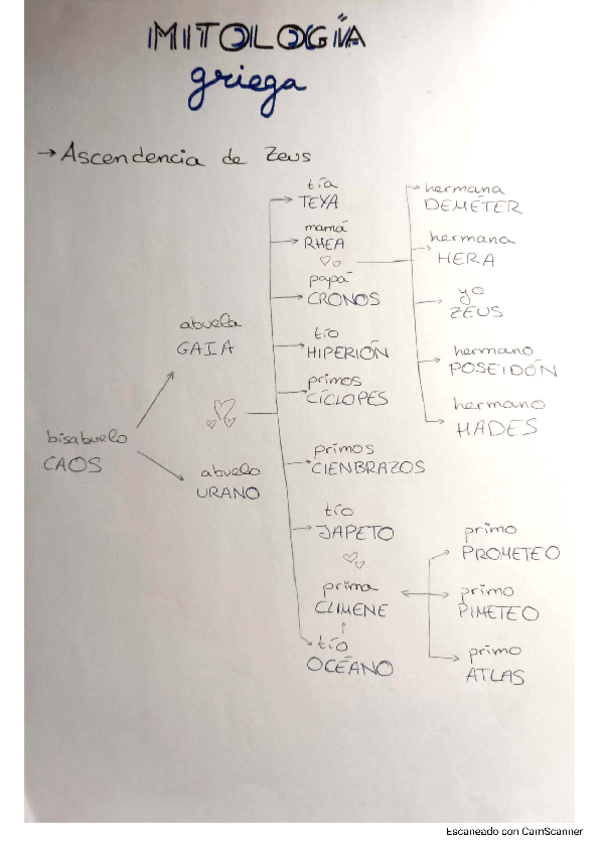 MITOLOGÍA
griega
→ Ascendencia de Zeus
bisabuelo
CAOS
abuela
GAIA
abuelo
URANO
tía
TEYA
mamá
RHEA
papá
CRONOS
tío
HIPERIÓN
primos
CÍCLOPES
primos
CIENBRAZOS
tío
JAPETO
prima
CLIMENE
tío
OCÉANO
hermana
DEMÉTER
hermana
HERA
yo
ZEUS
hermano
POSEIDÓN
hermano
HADES
primo
PROMETEO
primo
PIMETEO
primo
ATLAS
Escaneado con CamScanner